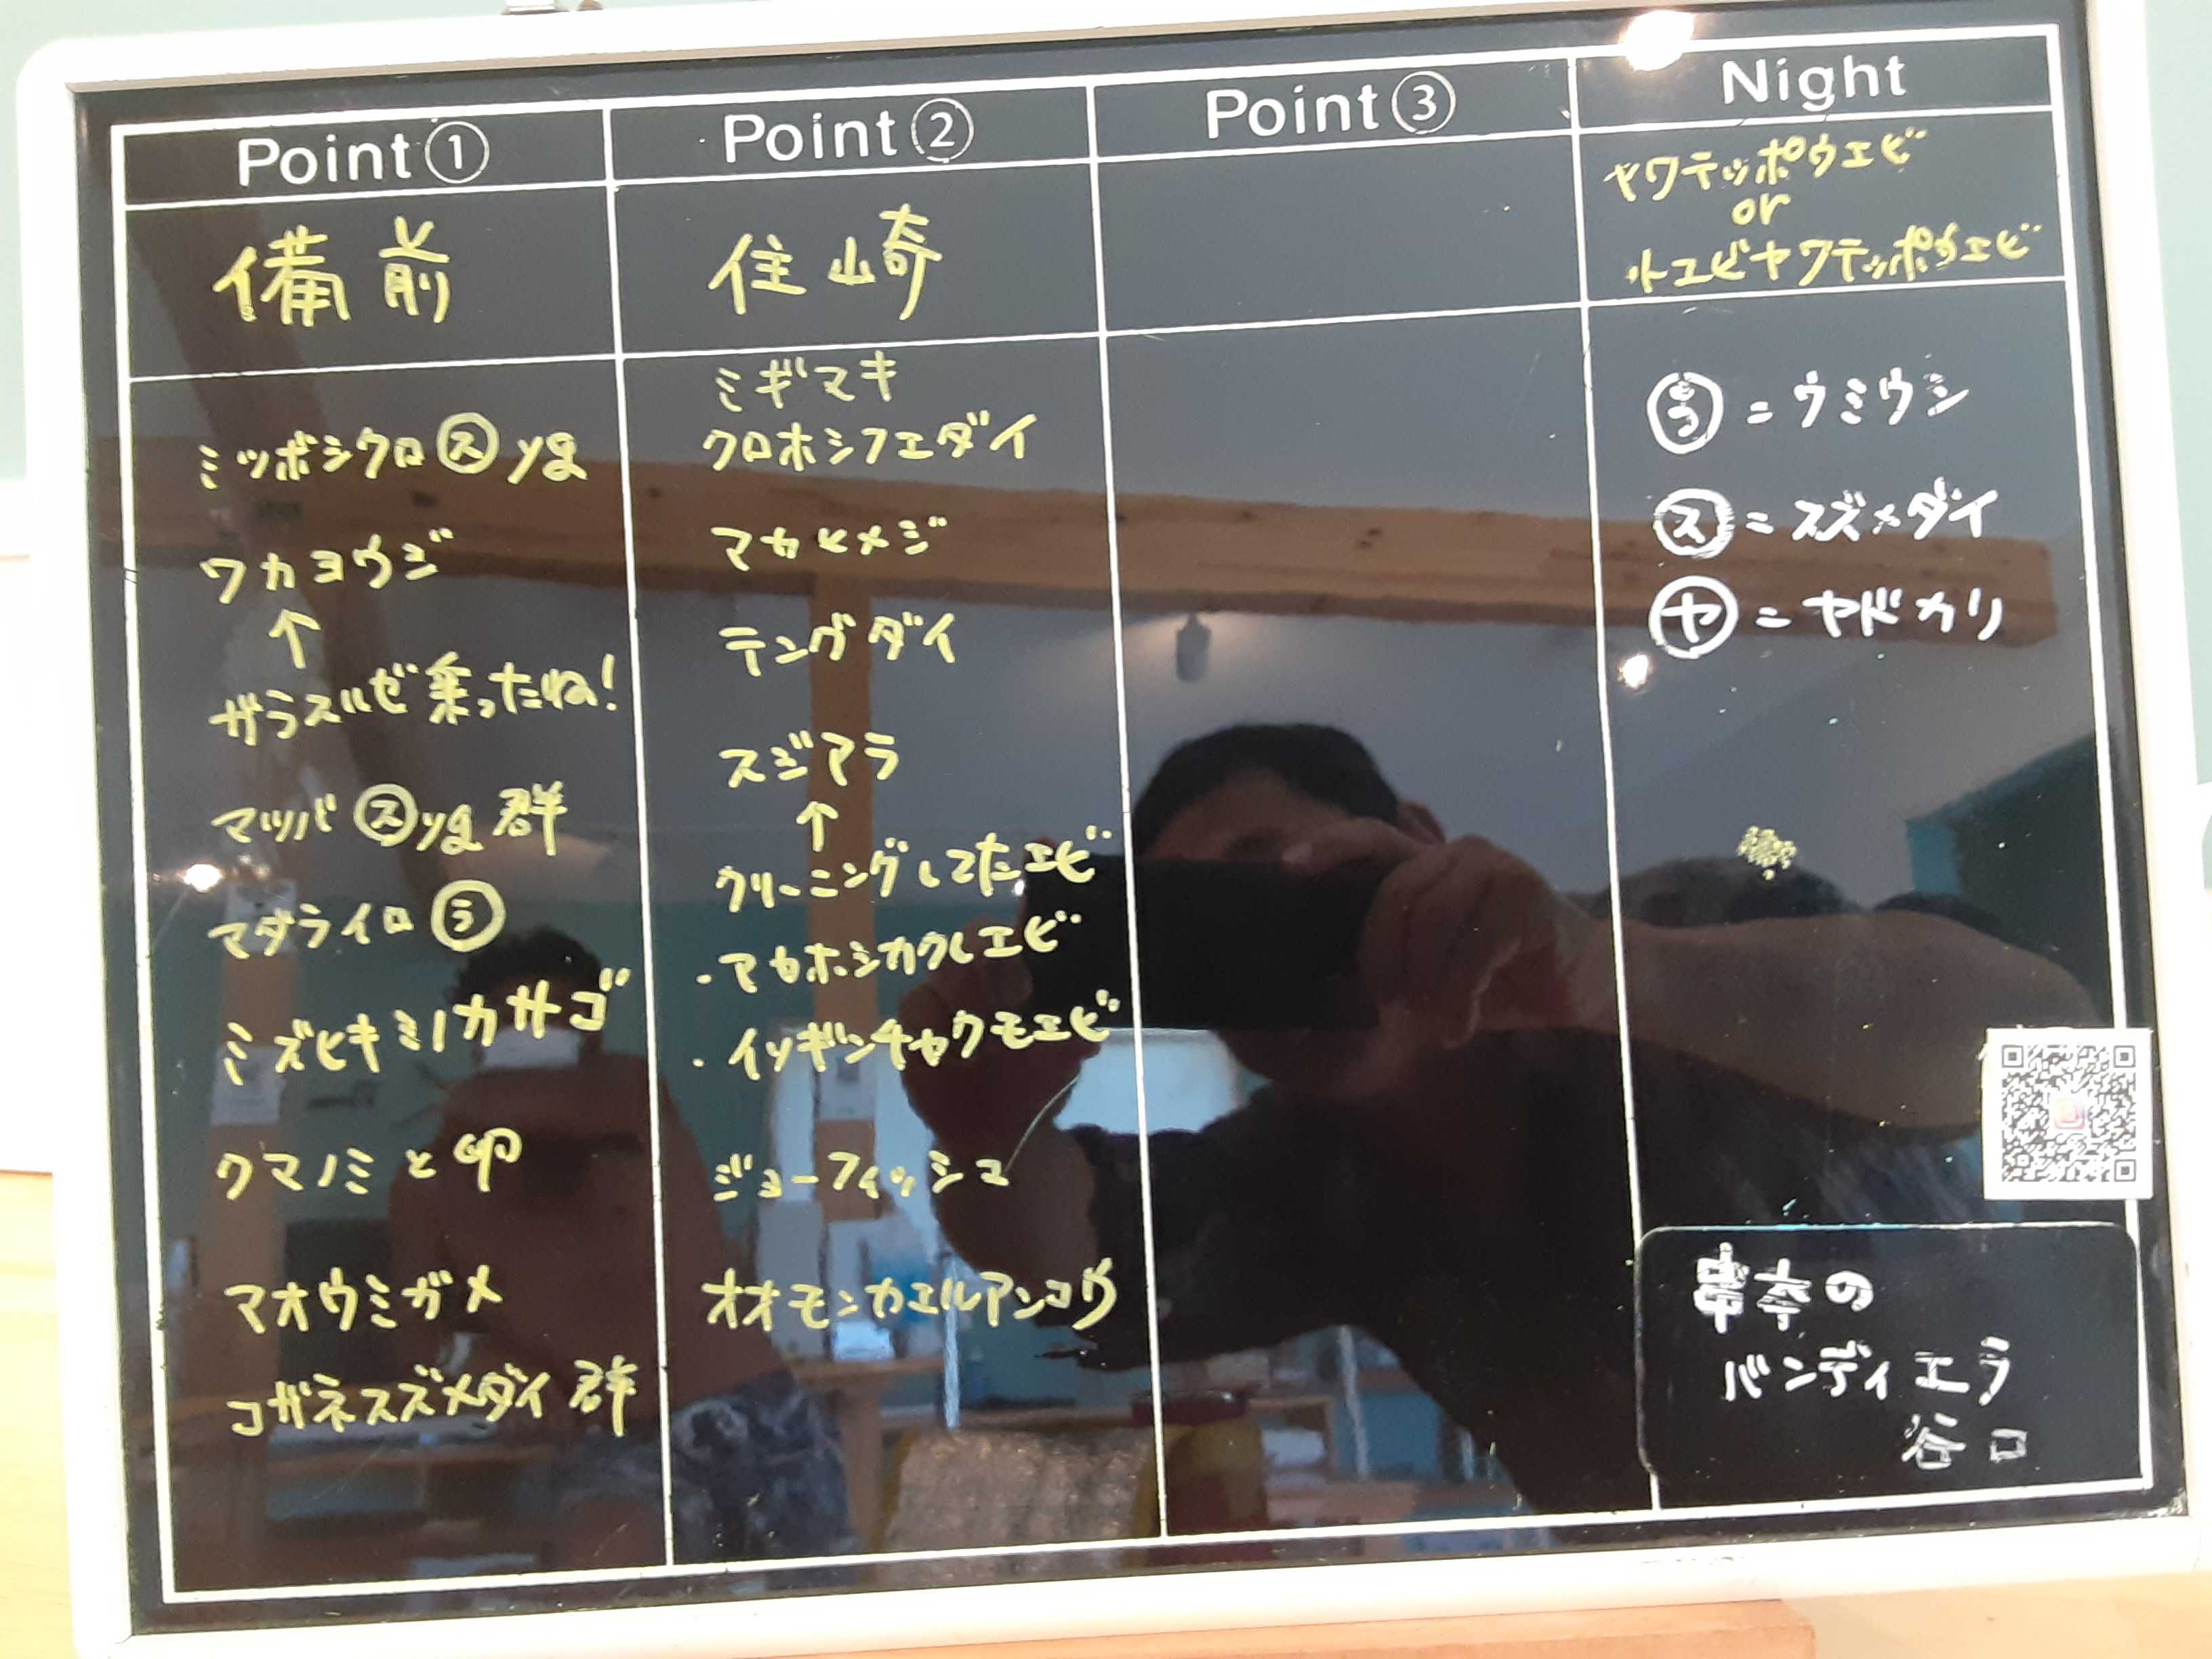 Point①
備前
ミツボシクロ㋜yg
ワカヨウジ
↑
ガラスハゼ乗ったね!
マツバ㋜yg群
マダライロ㋒
ミズヒキミノカサゴ
クマノミと卵
アオウミガメ
コガネスズメダイ群
Point②
住崎
ミギマキ
クロホシフエダイ
アカヒメジ
テングダイ
スジアラ
↑
クリーニングしてたエビ
・アカホシカクレエビ
・イソギンチャクモエビ
ジョーフィッシュ
オオモンカエルアンコウ
Point③
Night
ヤワテッポウエビ
or
トユビヤワテッポウエビ
㋒=ウミウシ
㋜=スズメダイ
㋳=ヤドカリ
串本の
バンディエラ
谷口